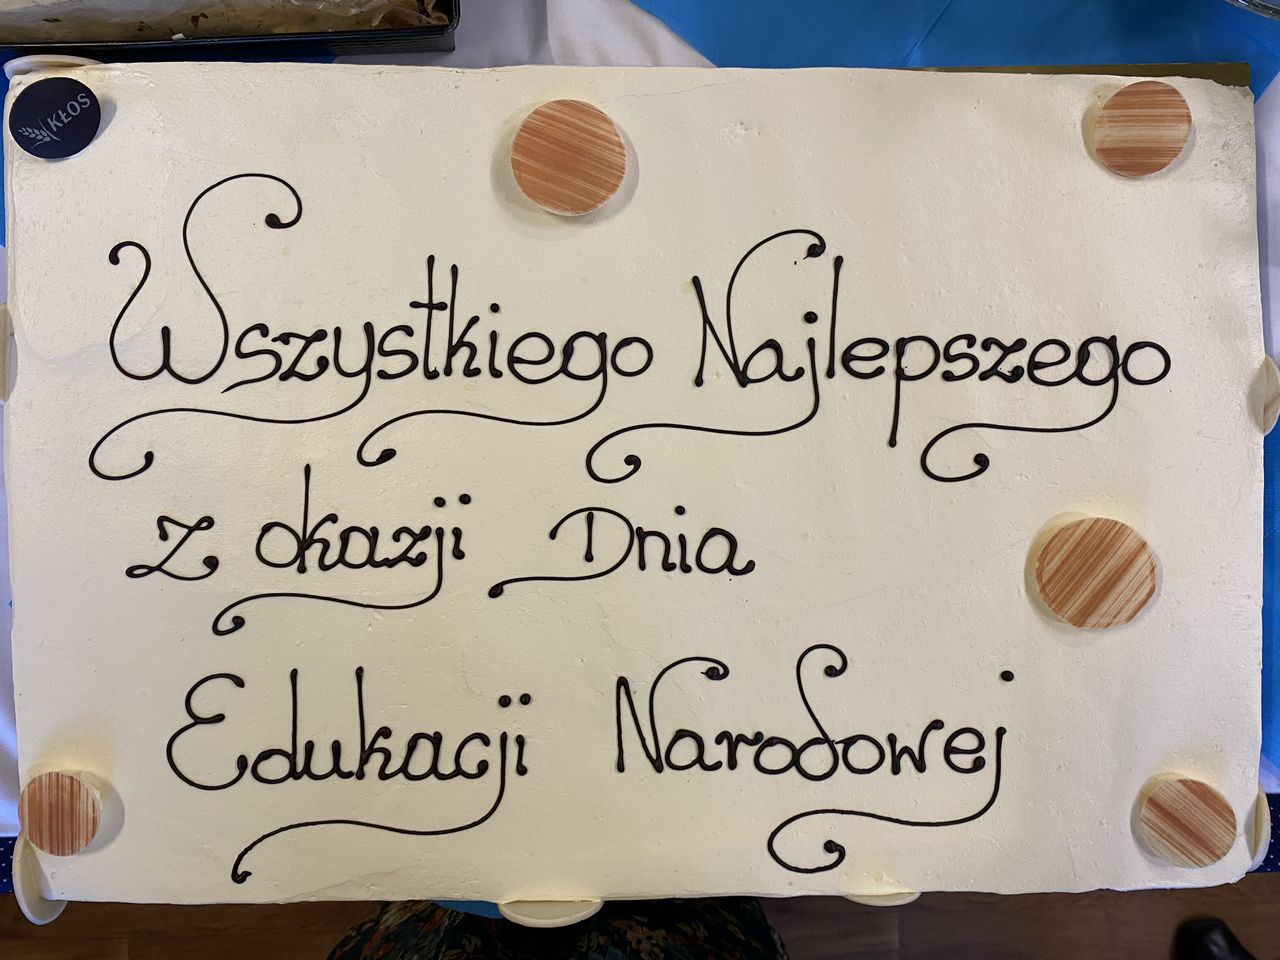 KŁOS
Wszystkiego Najlepszego
z okazji Dnia
Edukacji Narodowej